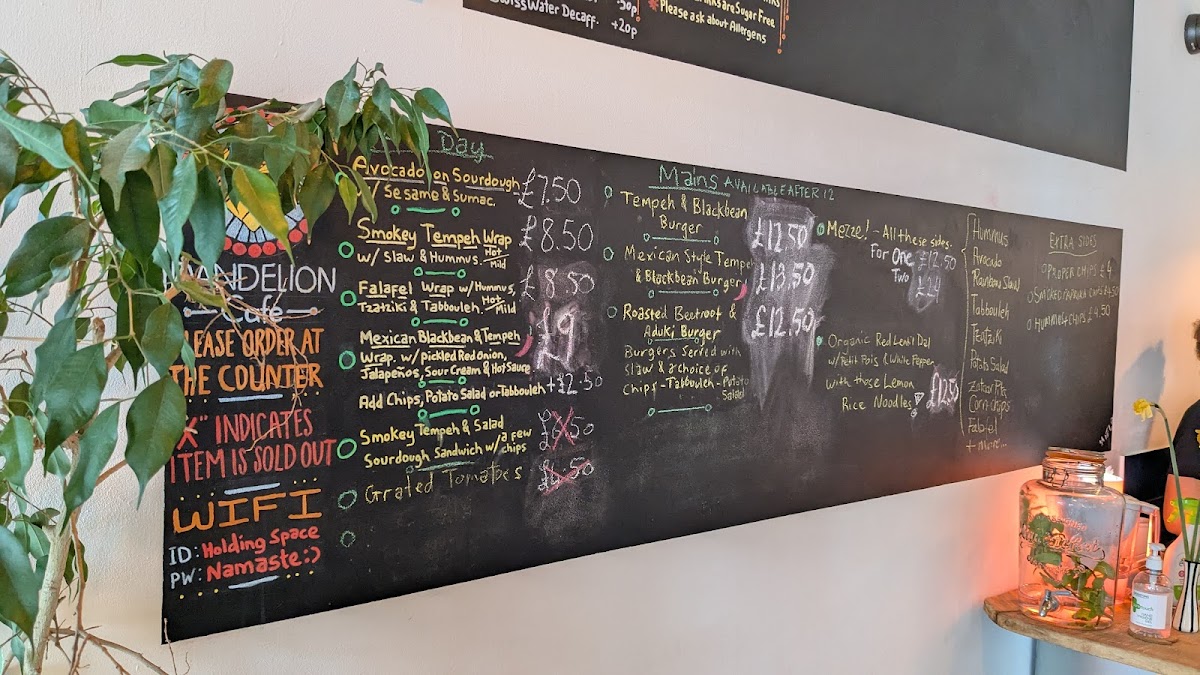 SwissWater Decaff. +20p
are Sugar Free
*Please ask about Allergens
Day
Avocado on Sourdough
w/ Sesame & Sumac.
£7.50
Smokey Tempeh Wrap
w/ Slaw & Hummus. Hot
Mild
£8.50
Falafel Wrap w/ Hummus,
Tzatziki & Tabbouleh. Hot
Mild
£8.50
Mexican Blackbean & Tempeh
Wrap. w/ pickled Red Onion,
Jalapeños, Sour Cream & Hot Sauce
£9
Add Chips, Potato Salad or Tabbouleh +£2.50
Smokey Tempeh & Salad
Sourdough Sandwich w/ a few
chips
Grated Tomatoes
DANDELION
Café
PLEASE ORDER AT
THE COUNTER
"X" INDICATES
ITEM IS SOLD OUT
WIFI
ID: Holding Space
PW: Namaste :)
Mains AVAILABLE AFTER 12
Tempeh & Blackbean
Burger
£12.50
Mexican Style Tempeh
& Blackbean Burger
£13.50
Roasted Beetroot &
Aduki Burger
£12.50
Burgers Served with
Slaw & a choice of
Chips - Tabbouleh - Potato
Salad
Meze! - All these sides.
For One £12.50
Two
Organic Red Lentil Dal
w/ Petit Pois & White Pepper
with those Lemon
Rice Noodles
£12.50
Hummus
Avocado
Rainbow Slaw
Tabbouleh
Tzatziki
Potato Salad
Corn chips
Falafel
+ more...
EXTRA SIDES
PROPER CHIPS £4
SMOKED PAPRIKA CHIPS £4.50
HUMMUS + CHIPS £4.50